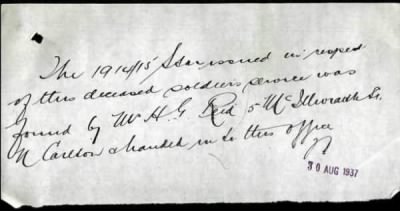 The 1914/15 Star issued in respect
of this deceased soldiers service was
found by Mr H. G. Reid 5 McIlwraith St.
N Carlton & handed in to this office
30 AUG 1937